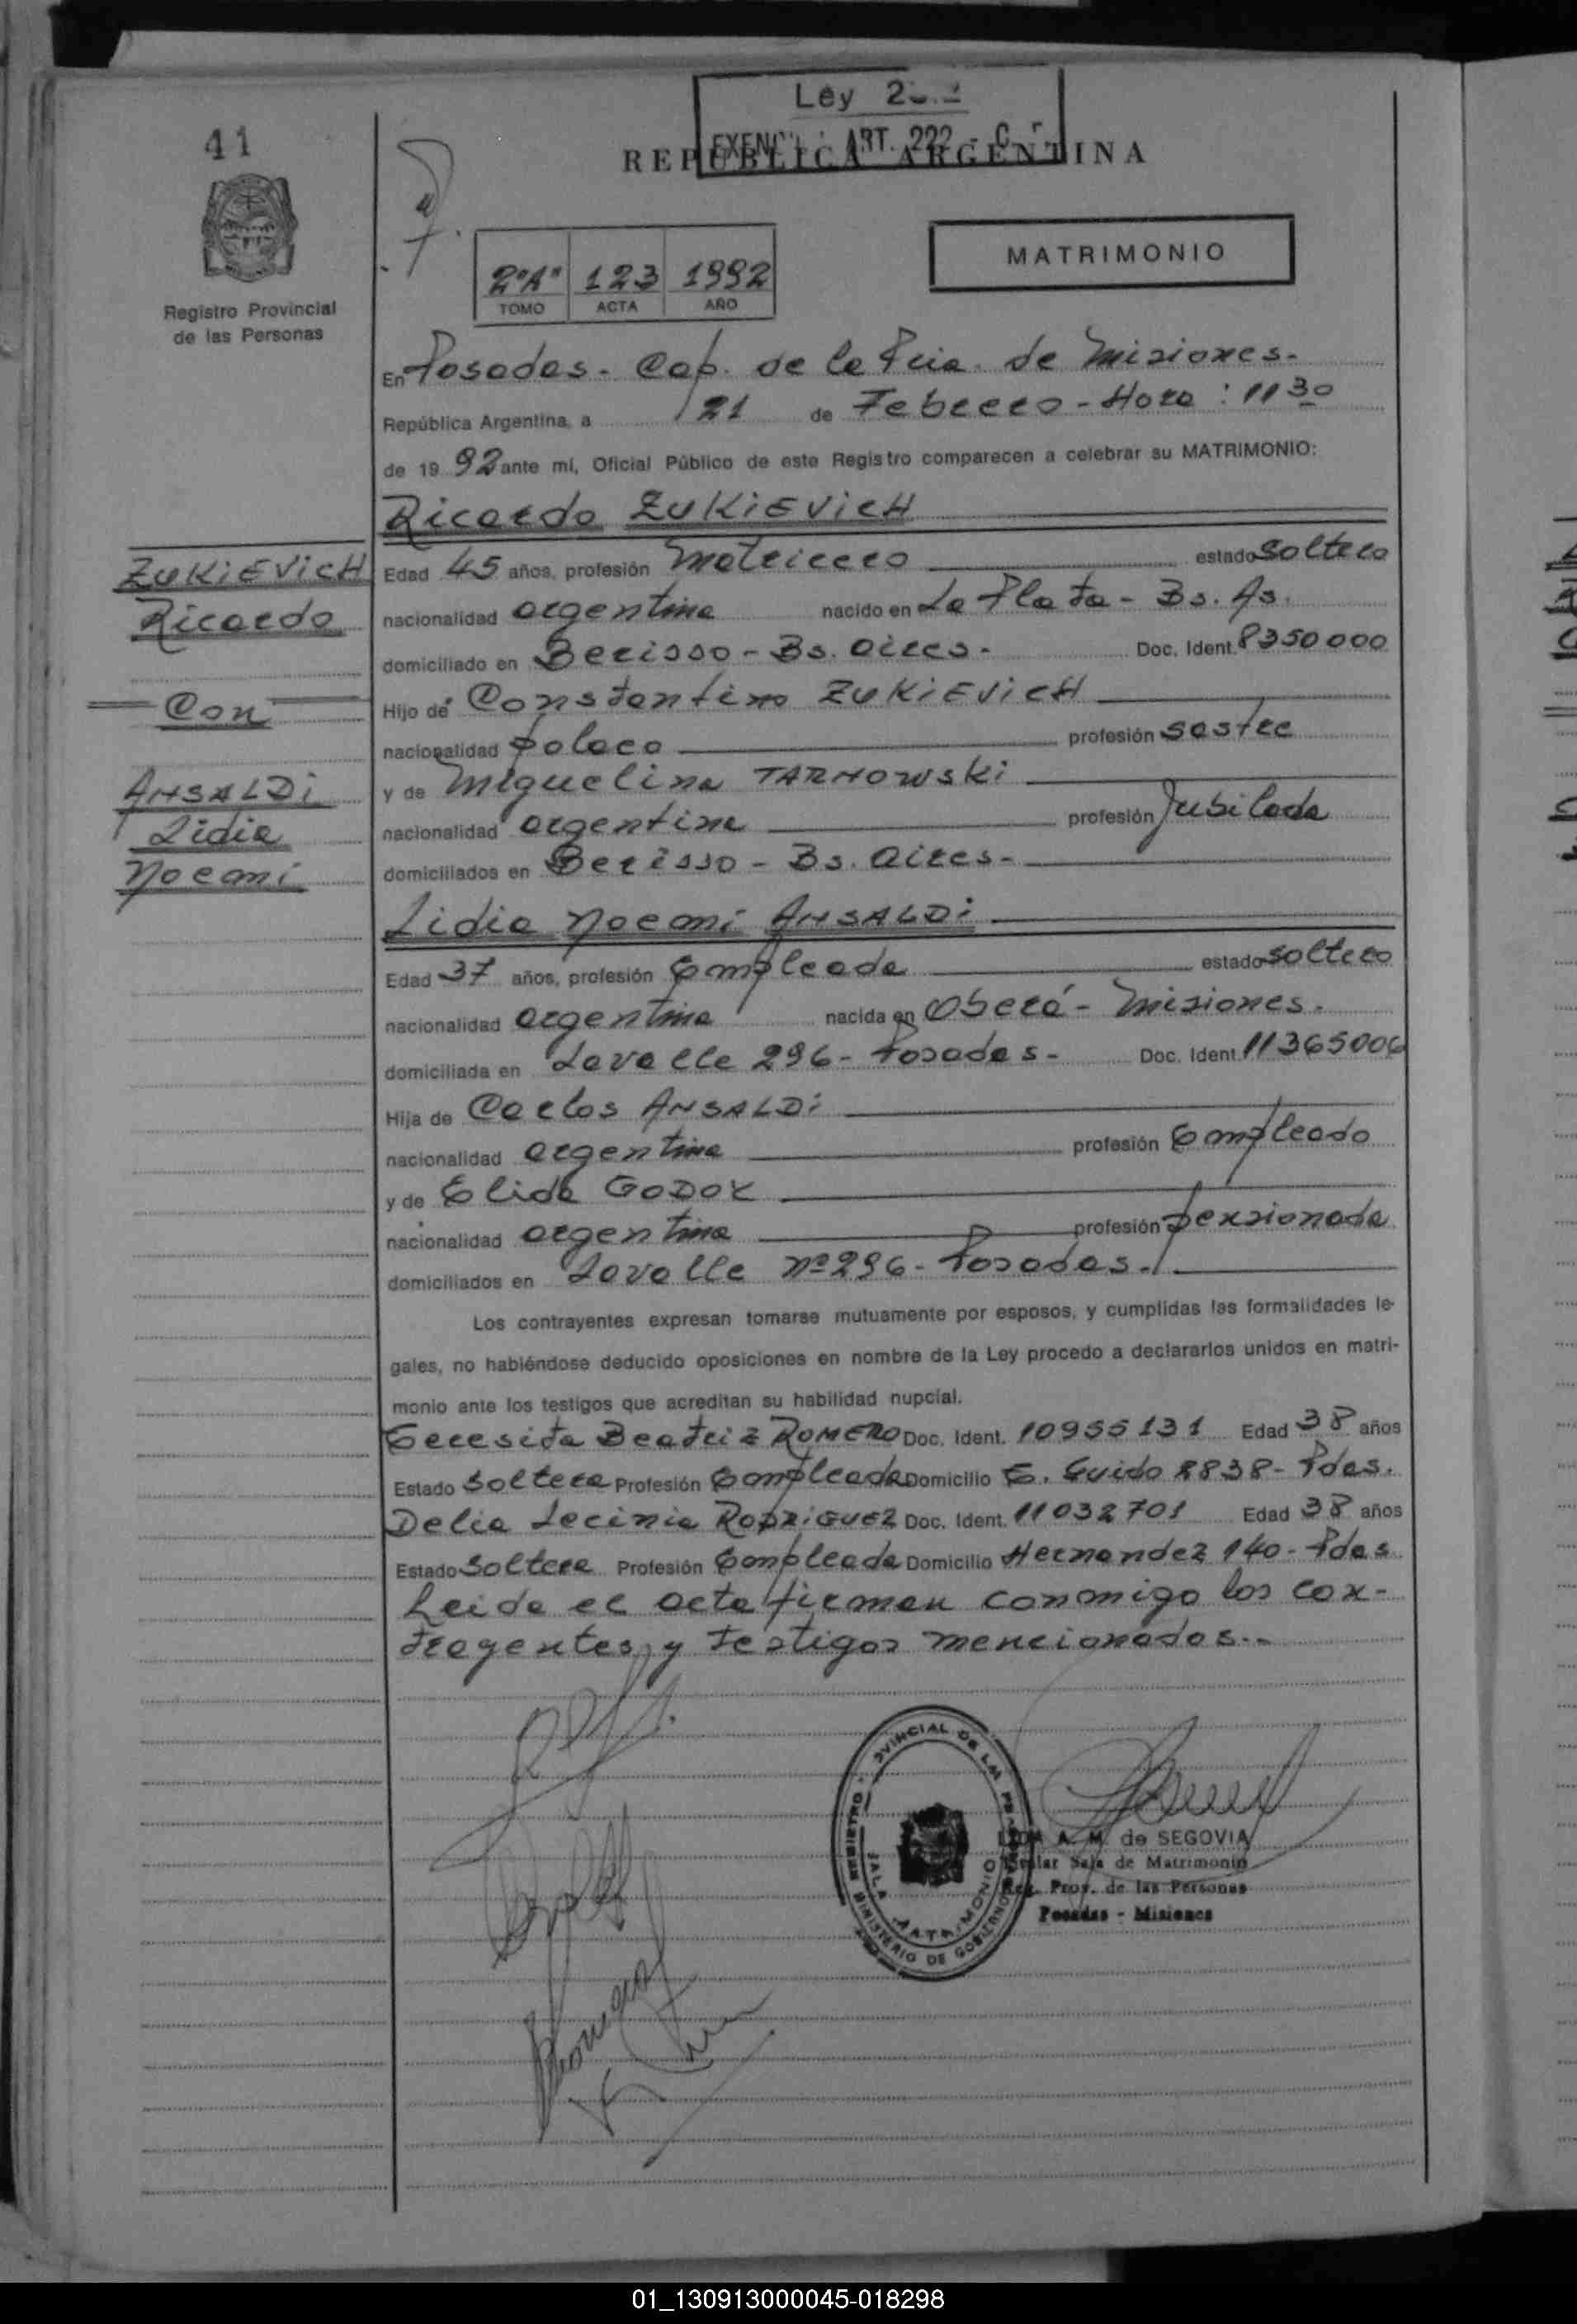 41
Ley
ART. 222
REPUBLICA ARGENTINA
MATRIMONIO
2º"A" 123 1992
TOMO ACTA AÑO
Registro Provincial
de las Personas
En Posadas - Cap. de la Pcia. de Misiones.-
República Argentina, a 21 de Febrero - Hora : 11 30
de 19 92 ante mí, Oficial Público de este Registro comparecen a celebrar su MATRIMONIO:
Ricardo ZUKIEVICH
ZUKIEVICH
Ricardo
Con
ANSALDI
Lidia
Noemi
Edad 45 años, profesión Matricero estado Soltero
nacionalidad argentina nacido en La Plata - Bs. As.
domiciliado en Berisso - Bs. Aires.- Doc. Ident. 8350000
Hijo de Constantino ZUKIEVICH
nacionalidad polaca profesión sastre
y de Miguelina TARNOWSKI
nacionalidad argentina profesión Jubilada
domiciliados en Berisso - Bs. Aires.-
Lidia Noemi ANSALDI
Edad 37 años, profesión Empleada estado soltero
nacionalidad argentina nacida en Oberá - Misiones.
domiciliada en Lavalle 296 - Posadas - Doc. Ident. 11365006
Hija de Carlos ANSALDI
nacionalidad argentina profesión Empleado
y de Elida GODOY
nacionalidad argentina profesión pensionada
domiciliados en Lavalle nº 296 - Posadas.
Los contrayentes expresan tomarse mutuamente por esposos, y cumplidas las formalidades le-
gales, no habiéndose deducido oposiciones en nombre de la Ley procedo a declararlos unidos en matri-
monio ante los testigos que acreditan su habilidad nupcial.
Beatriz ROMERO Doc. Ident. 10955131 Edad 38 años
Estado Soltera Profesión Empleada Domicilio E. Guido 2838 - Pdas.
Delia Lecinia RODRIGUEZ Doc. Ident. 11032701 Edad 38 años
Estado Soltera Profesión Empleada Domicilio Hernandez 140 - Pdas
Leida el acta firman conmigo los con-
trayentes y testigos mencionados.-
REGISTRO PROVINCIAL DE LAS
SALA MATRIMONIO
MINISTERIO DE GOBIERNO
A. M. de SEGOVIA
Titular Sala de Matrimonio
Reg. Prov. de las Personas
Posadas - Misiones
01_130913000045-018298